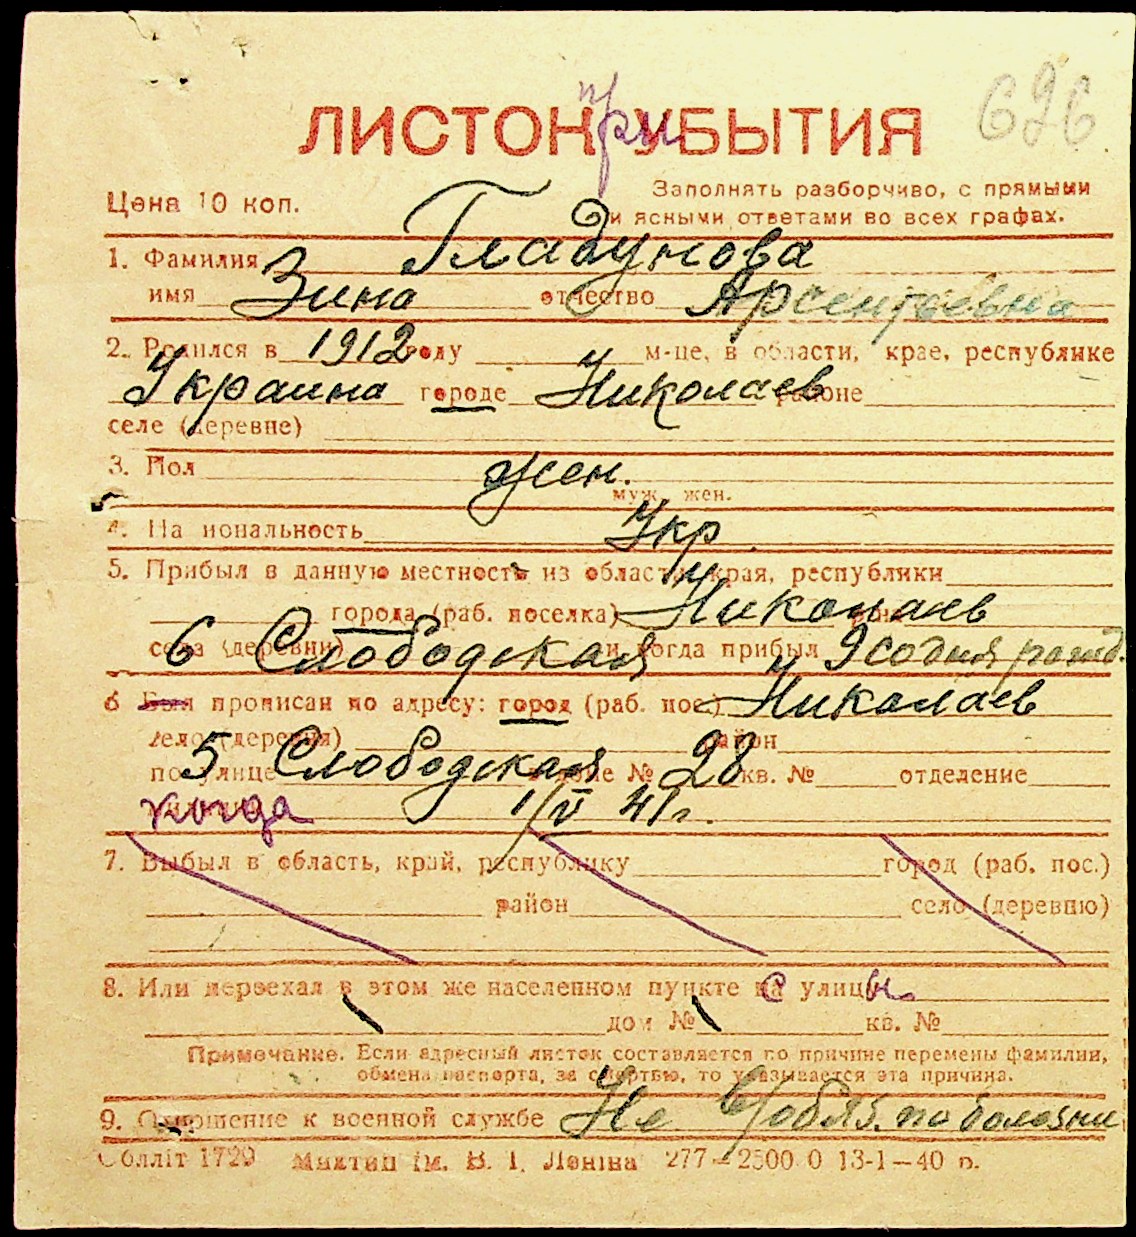 696
ЛИСТОК при УБЫТИЯ
Цена 10 коп.
Заполнять разборчиво, с прямыми
и ясными ответами во всех графах.
1. Фамилия Гладунова
имя Зина отчество Арсентьевна
2. Родился в 1912 году м-це, в области, крае, республике
Украина городе Николаев районе
селе (деревне)
3. Пол жен.
муж. жен.
4. Национальность Укр
5. Прибыл в данную местность из области, края, республики
города (раб. поселка) Николаев
села (деревни) 6 Слободская и когда прибыл
6 Был прописан по адресу: город (раб. пос.) Николаев
село (деревня) район
по улице 5 Слободская в доме № 28 кв. № отделение
когда 1/V 41 г.
7. Выбыл в область, край, республику город (раб. пос.)
район село (деревню)
8. Или переехал в этом же населенном пункте с улицы
дом № кв. №
Примечание. Если адресный листок составляется по причине перемены фамилии,
обмена паспорта, за смертью, то указывается эта причина.
9. Отношение к военной службе Не по болезни
Облліт 1729 ім. В. І. Леніна 277—2500 0 13-1—40 р.